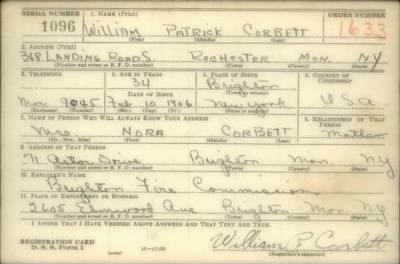 SERIAL NUMBER 1. NAME (Print) ORDER NUMBER
1096 William Patrick Corbett 1633
(First) (Middle) (Last)
2. ADDRESS (Print)
368 Landing Road S. Rochester Mon. NY
(Number and street or R. F. D. number) (Town) (County) (State)
3. TELEPHONE 4. AGE IN YEARS 5. PLACE OF BIRTH 6. COUNTRY OF CITIZENSHIP
34 Brighton
DATE OF BIRTH (Town or county)
Mon 9045 Feb 10 1906 New York USA
(Exchange) (Number) (Mo.) (Day) (Yr.) (State or country)
7. NAME OF PERSON WHO WILL ALWAYS KNOW YOUR ADDRESS 8. RELATIONSHIP OF THAT PERSON
Mrs. Nora Corbett Mother
(Mr., Mrs., Miss) (First) (Middle) (Last)
9. ADDRESS OF THAT PERSON
71 Astor Drive Brighton Mon. NY
(Number and street or R. F. D. number) (Town) (County) (State)
10. EMPLOYER'S NAME
Brighton Fire Commission
11. PLACE OF EMPLOYMENT OR BUSINESS
2605 Elmwood Ave Brighton Mon. NY
(Number and street or R. F. D. number) (Town) (County) (State)
I AFFIRM THAT I HAVE VERIFIED ABOVE ANSWERS AND THAT THEY ARE TRUE.
REGISTRATION CARD
D. S. S. Form 1 (over) William P. Corbett
(Registrant's signature)